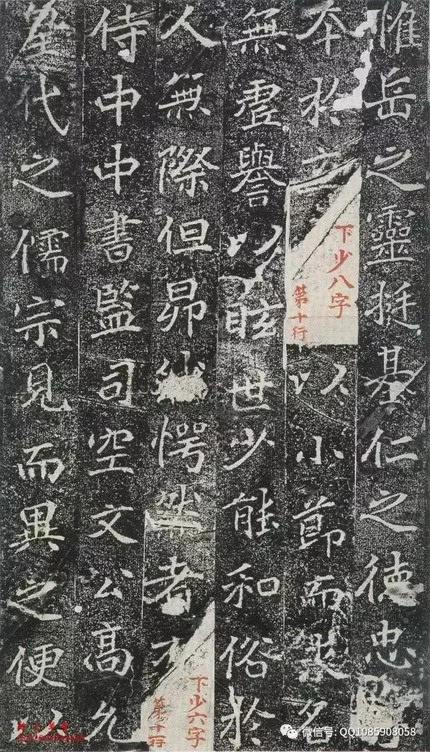 惟岳之靈挺基仁之德忠
本於立
下少八字
第十行
以小節而
無虛譽以眩世少能和俗於
人無際但昂然愕然者不
下少六字
侍中中書監司空文公高允
皇代之儒宗見而異之便以
微信号: QQ1085908058